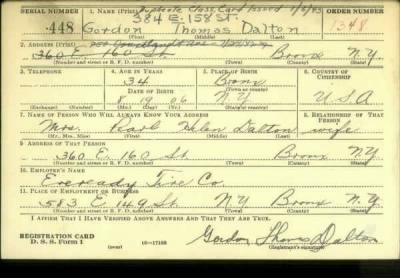 Duplicate Class. Card Issued 1/5/43
SERIAL NUMBER 1. NAME (Print) 384 E. 158 ST. ORDER NUMBER
448 Gordon Thomas Dalton 1348
(First) (Middle) (Last)
2. ADDRESS (Print)
360 E 160 St Bronx N.Y.
(Number and street or R. F. D. number) (Town) (County) (State)
3. TELEPHONE 4. AGE IN YEARS 5. PLACE OF BIRTH 6. COUNTRY OF CITIZENSHIP
34 Bronx
DATE OF BIRTH (Town or county)
8 19 06 N.Y U.S.A
(Exchange) (Number) (Mo.) (Day) (Yr.) (State or country)
7. NAME OF PERSON WHO WILL ALWAYS KNOW YOUR ADDRESS 8. RELATIONSHIP OF THAT PERSON
Mrs. Pearl Helen Dalton wife
(Mr., Mrs., Miss) (First) (Middle) (Last)
9. ADDRESS OF THAT PERSON
360 E. 160 St. Bronx N.Y.
(Number and street or R. F. D. number) (Town) (County) (State)
10. EMPLOYER'S NAME
Eveready Tire Co.
11. PLACE OF EMPLOYMENT OR BUSINESS
583 E 149 St. N.Y Bronx N.Y.
(Number and street or R. F. D. number) (Town) (County) (State)
I AFFIRM THAT I HAVE VERIFIED ABOVE ANSWERS AND THAT THEY ARE TRUE.
REGISTRATION CARD
D. S. S. Form 1 (over) 16—17105 Gordon Thomas Dalton
(Registrant's signature)